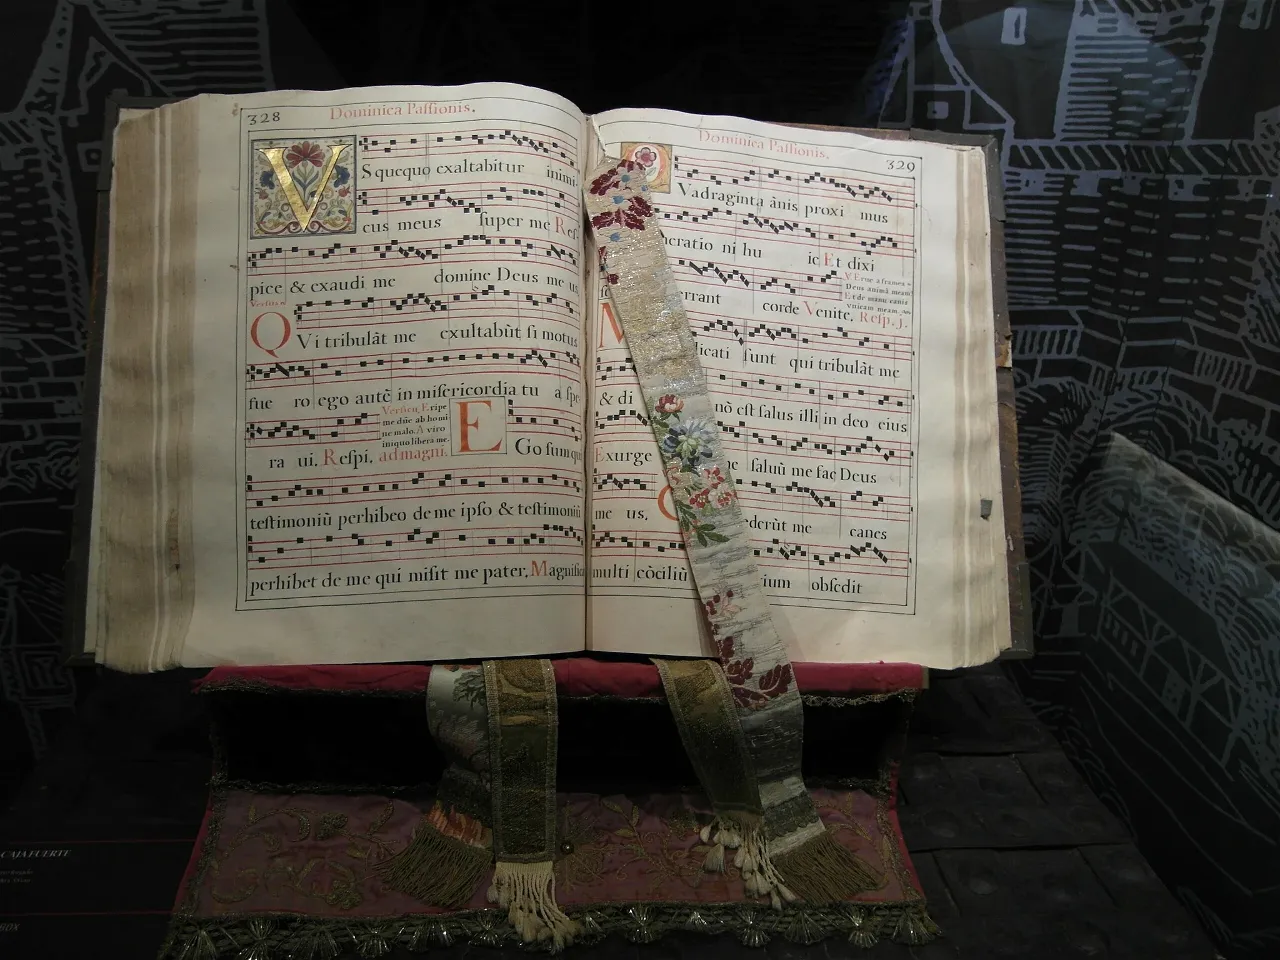 328
Dominica Passionis.
V Squequo exaltabitur inimi
cus meus super me Res
pice & exaudi me domine Deus me us
Versus
QVi tribulãt me exultabũt si motus
fue ro ego autẽ in misericordia tu a spe
Versicu. Eripe
me dñe ab homi
ne malo. A viro
iniquo libera me.
ra ui. Respi. ad magni.
EGo sum qui
testimoniũ perhibeo de me ipso & testimoniũ
perhibet de me qui misit me pater. Magnifica
Dominica Passionis.
329
QVadraginta ãnis proxi mus
neratio ni hu ic Et dixi
errant corde Venite. Resp. j.
V. Erue a framea
Deus animã meam
Et de manu canis
vnicam meam.
M icati sunt qui tribulãt me
& di nõ est salus illi in deo eius
Exurge ne saluũ me fac Deus
me us. ederũt me canes
multi cõciliũ ium obsedit
CAJA FUERTE
BOX